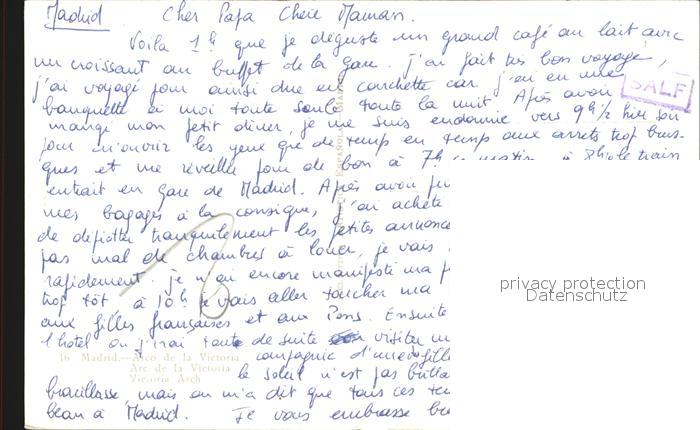 Madrid Cher Papa Chère Maman.
Voilà 1h que je déguste un grand café au lait avec
un croissant au buffet de la gare. j'ai fait très bon voyage,
j'ai voyagé pour ainsi dire en couchette car j'ai eu une
banquette à moi toute seule toute la nuit. Après avoir
SALF
mangé mon petit dîner, je me suis endormie vers 9h ½ hier soir
pour n'ouvrir les yeux que de temp en temp aux arrets trop brus-
ques et me réveiller pour de bon à 7h à 8h le train
entrait en gare de Madrid. Après avoir
mes bagages à la consigne, j'ai acheté
de dépiotter tranquilement les petites annonce
pas mal de chambres à louer, je vais
rapidement. je n'ai encore manifesté ma
trop tôt à 10h je vais aller toucher ma
aux filles françaises et aux Pons. Ensuite
l'hôtel où j'irai toute de suite visiter
16 Madrid.—Arco de la Victoria
compagnie d'une fille
Arc de la Victoria
le soleil n'est pas
Victoria Arch
mais on m'a dit que tous ces
beau à Madrid. Je vous embrasse
privacy protection
Datenschutz